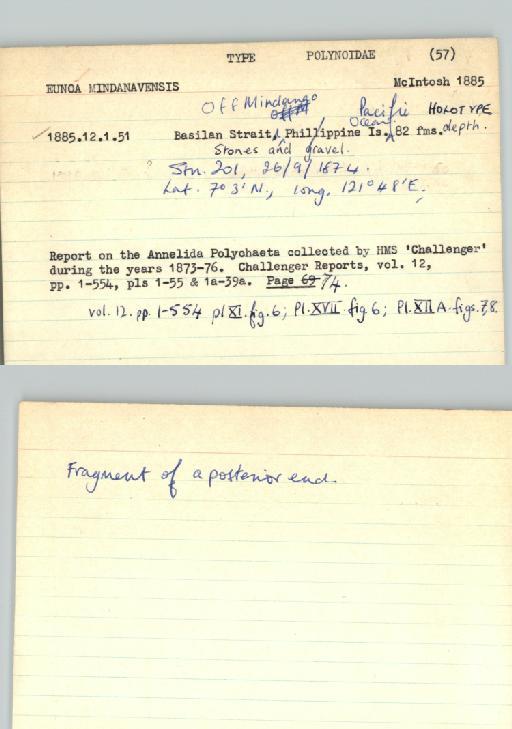 TYPE POLYNOIDAE (57)
EUNOA MINDANAVENSIS McIntosh 1885
Off Mindanao Pacific Ocean HOLOTYPE
1885.12.1.51 Basilan Strait, Phillippine Is. 82 fms. depth.
Stones and gravel.
Stn. 201, 26/9/1874.
Lat. 7° 3' N., long. 121° 48' E.
Report on the Annelida Polychaeta collected by HMS 'Challenger'
during the years 1873-76. Challenger Reports, vol. 12,
pp. 1-554, pls 1-55 & 1a-39a. Page 69 74.
vol. 12. pp. 1-554 pl XI. fig. 6; Pl. XVII fig 6; Pl. XII A. figs. 7,8.
Fragment of a posterior end.